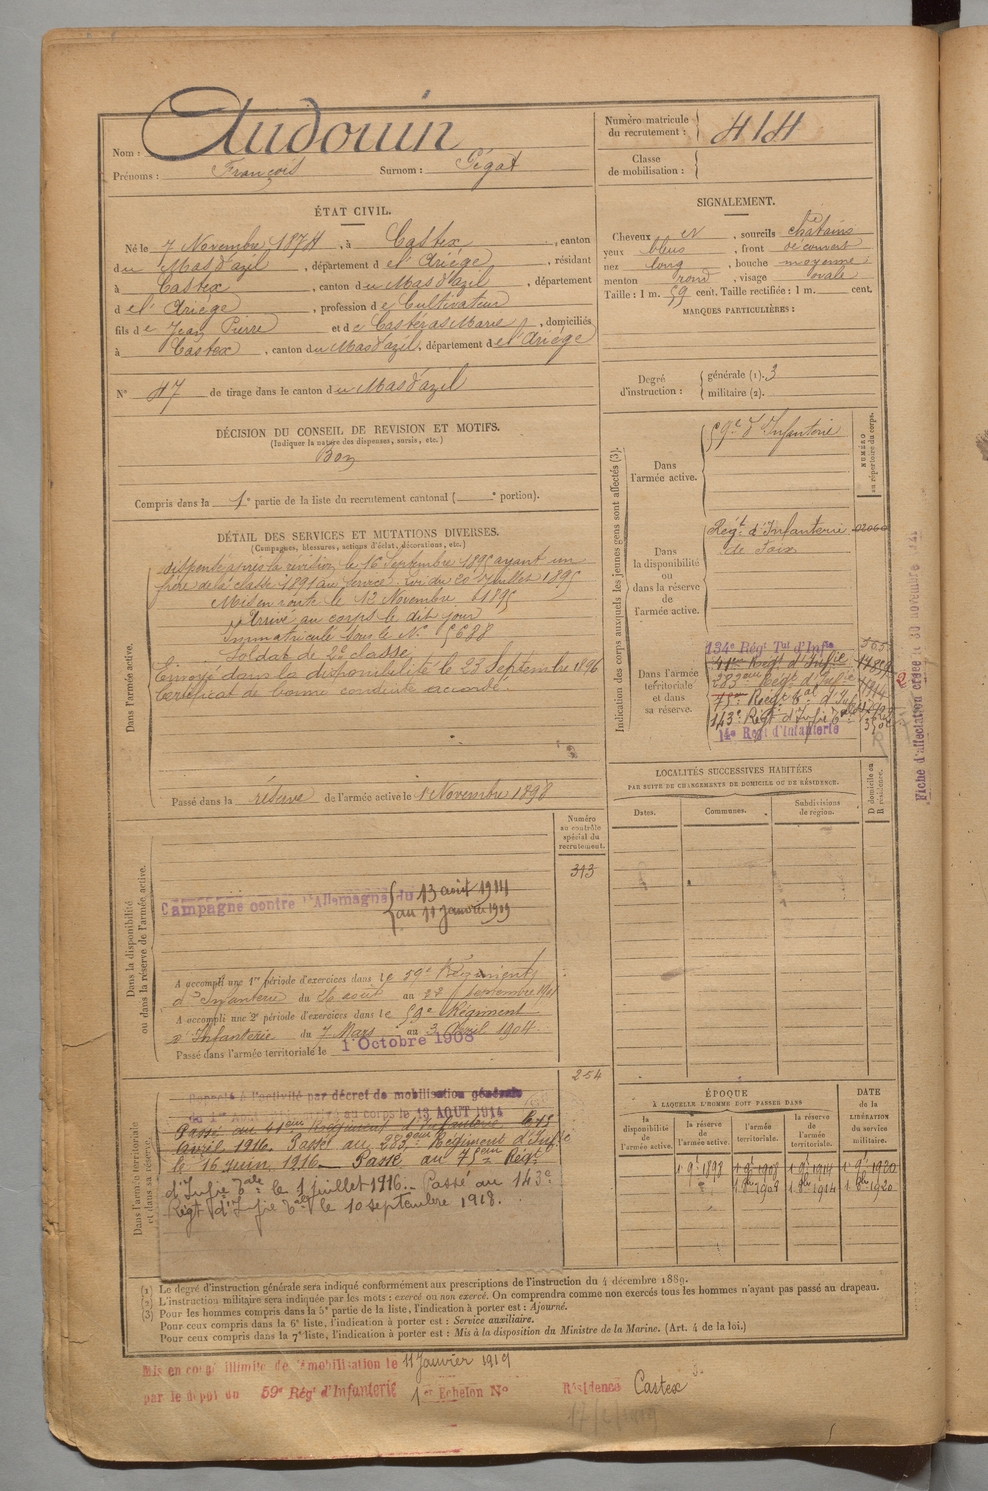 Nom : Audouin
Prénoms : François Surnom : Gigat
Numéro matricule du recrutement : 414
Classe de mobilisation :
ÉTAT CIVIL.
Né le 7 Novembre 1874, à Castex, canton
du Masdazil, département de l'Ariége, résidant
à Castex, canton du Masdazil, département
de l'Ariége, profession de Cultivateur
fils de Jean Pierre et de Castéras Marie, domiciliés
à Castex, canton du Masdazil, département de l'Ariége
N° 47 de tirage dans le canton du Masdazil
SIGNALEMENT.
Cheveux et, sourcils châtains
yeux bleus, front découvert
nez long, bouche moyenne
menton rond, visage ovale
Taille : 1 m. 59 cent. Taille rectifiée : 1 m. cent.
MARQUES PARTICULIÈRES :
Degré d'instruction : générale (1). 3
militaire (2).
DÉCISION DU CONSEIL DE REVISION ET MOTIFS.
(Indiquer la nature des dispenses, sursis, etc.)
Bon
Compris dans la 1e partie de la liste du recrutement cantonal ( portion).
DÉTAIL DES SERVICES ET MUTATIONS DIVERSES.
(Campagnes, blessures, actions d'éclat, décorations, etc.)
Dans l'armée active.
dispensé après la révision le 16 Septembre 1895 ayant un
frère de la classe 1891 au service. Loi du 20 Juillet 1895
Mis en route le 12 Novembre 1895
Arrivé au corps le dit jour
Immatriculé sous le N° 5688
Soldat de 2e classe
Envoyé dans la disponibilité le 23 Septembre 1896
Certificat de bonne conduite accordé.
Passé dans la réserve de l'armée active le 1 Novembre 1898
Indication des corps auxquels les jeunes gens sont affectés (3).
NUMÉRO au répertoire du corps.
Dans l'armée active. 59e d'Infanterie
Dans la disponibilité ou dans la réserve de l'armée active.
Régt. d'Infanterie 02060
de Foix
Dans l'armée territoriale et dans sa réserve.
134e Régt Tal d'Infie
41em Regt d'Infie
283em Regt d'Infie
75em Regt tal d'Inf
143e Régt d'Infie tale
14e Regt d'Infanterie
Fiche d'affectation créée le 30 novembre
LOCALITÉS SUCCESSIVES HABITÉES
PAR SUITE DE CHANGEMENTS DE DOMICILE OU DE RÉSIDENCE.
Dates. Communes. Subdivisions de région. D domicile ou R résidence.
Dans la disponibilité ou dans la réserve de l'armée active.
Numéro au contrôle spécial du recrutement.
313
Campagne contre l'Allemagne du 13 août 1914
au 11 Janvier 1919
A accompli une 1re période d'exercices dans le 59e Régiment
d'Infanterie du 26 août au 22 Septembre 1901
A accompli une 2e période d'exercices dans le 59e Régiment
d'Infanterie du 7 Mars au 3 Avril 1904
Passé dans l'armée territoriale le 1 Octobre 1908
254
Dans l'armée territoriale et dans sa réserve.
Rappelé à l'activité par décret de mobilisation générale
du 1er Août au corps le 13 AOUT 1914
Passé au 41em Régiment d'Infanterie le 15
Avril 1916. Passé au 283em Régiment d'Infie
le 16 juin 1916. Passé au 75em Régt
d'Infie Tale le 1 juillet 1916. Passé au 143e
Régt d'Infie Tale le 10 septembre 1918.
ÉPOQUE
À LAQUELLE L'HOMME DOIT PASSER DANS
la disponibilité de l'armée active. la réserve de l'armée active. l'armée territoriale. la réserve de l'armée territoriale.
DATE de la LIBÉRATION du service militaire.
1 9e 1898 1 9e 1908 1 9e 1914 1 9e 1920
1 8bre 1908 1 8bre 1914 1 8bre 1920
(1) Le degré d'instruction générale sera indiqué conformément aux prescriptions de l'instruction du 4 décembre 1889.
(2) L'instruction militaire sera indiquée par les mots : exercé ou non exercé. On comprendra comme non exercés tous les hommes n'ayant pas passé au drapeau.
(3) Pour les hommes compris dans la 5e partie de la liste, l'indication à porter est : Ajourné.
Pour ceux compris dans la 6e liste, l'indication à porter est : Service auxiliaire.
Pour ceux compris dans la 7e liste, l'indication à porter est : Mis à la disposition du Ministre de la Marine. (Art. 4 de la loi.)
Mis en congé illimité de démobilisation le 11 Janvier 1919
par le dépôt du 59e Régt d'Infanterie 1er Echelon N° Résidence Castex